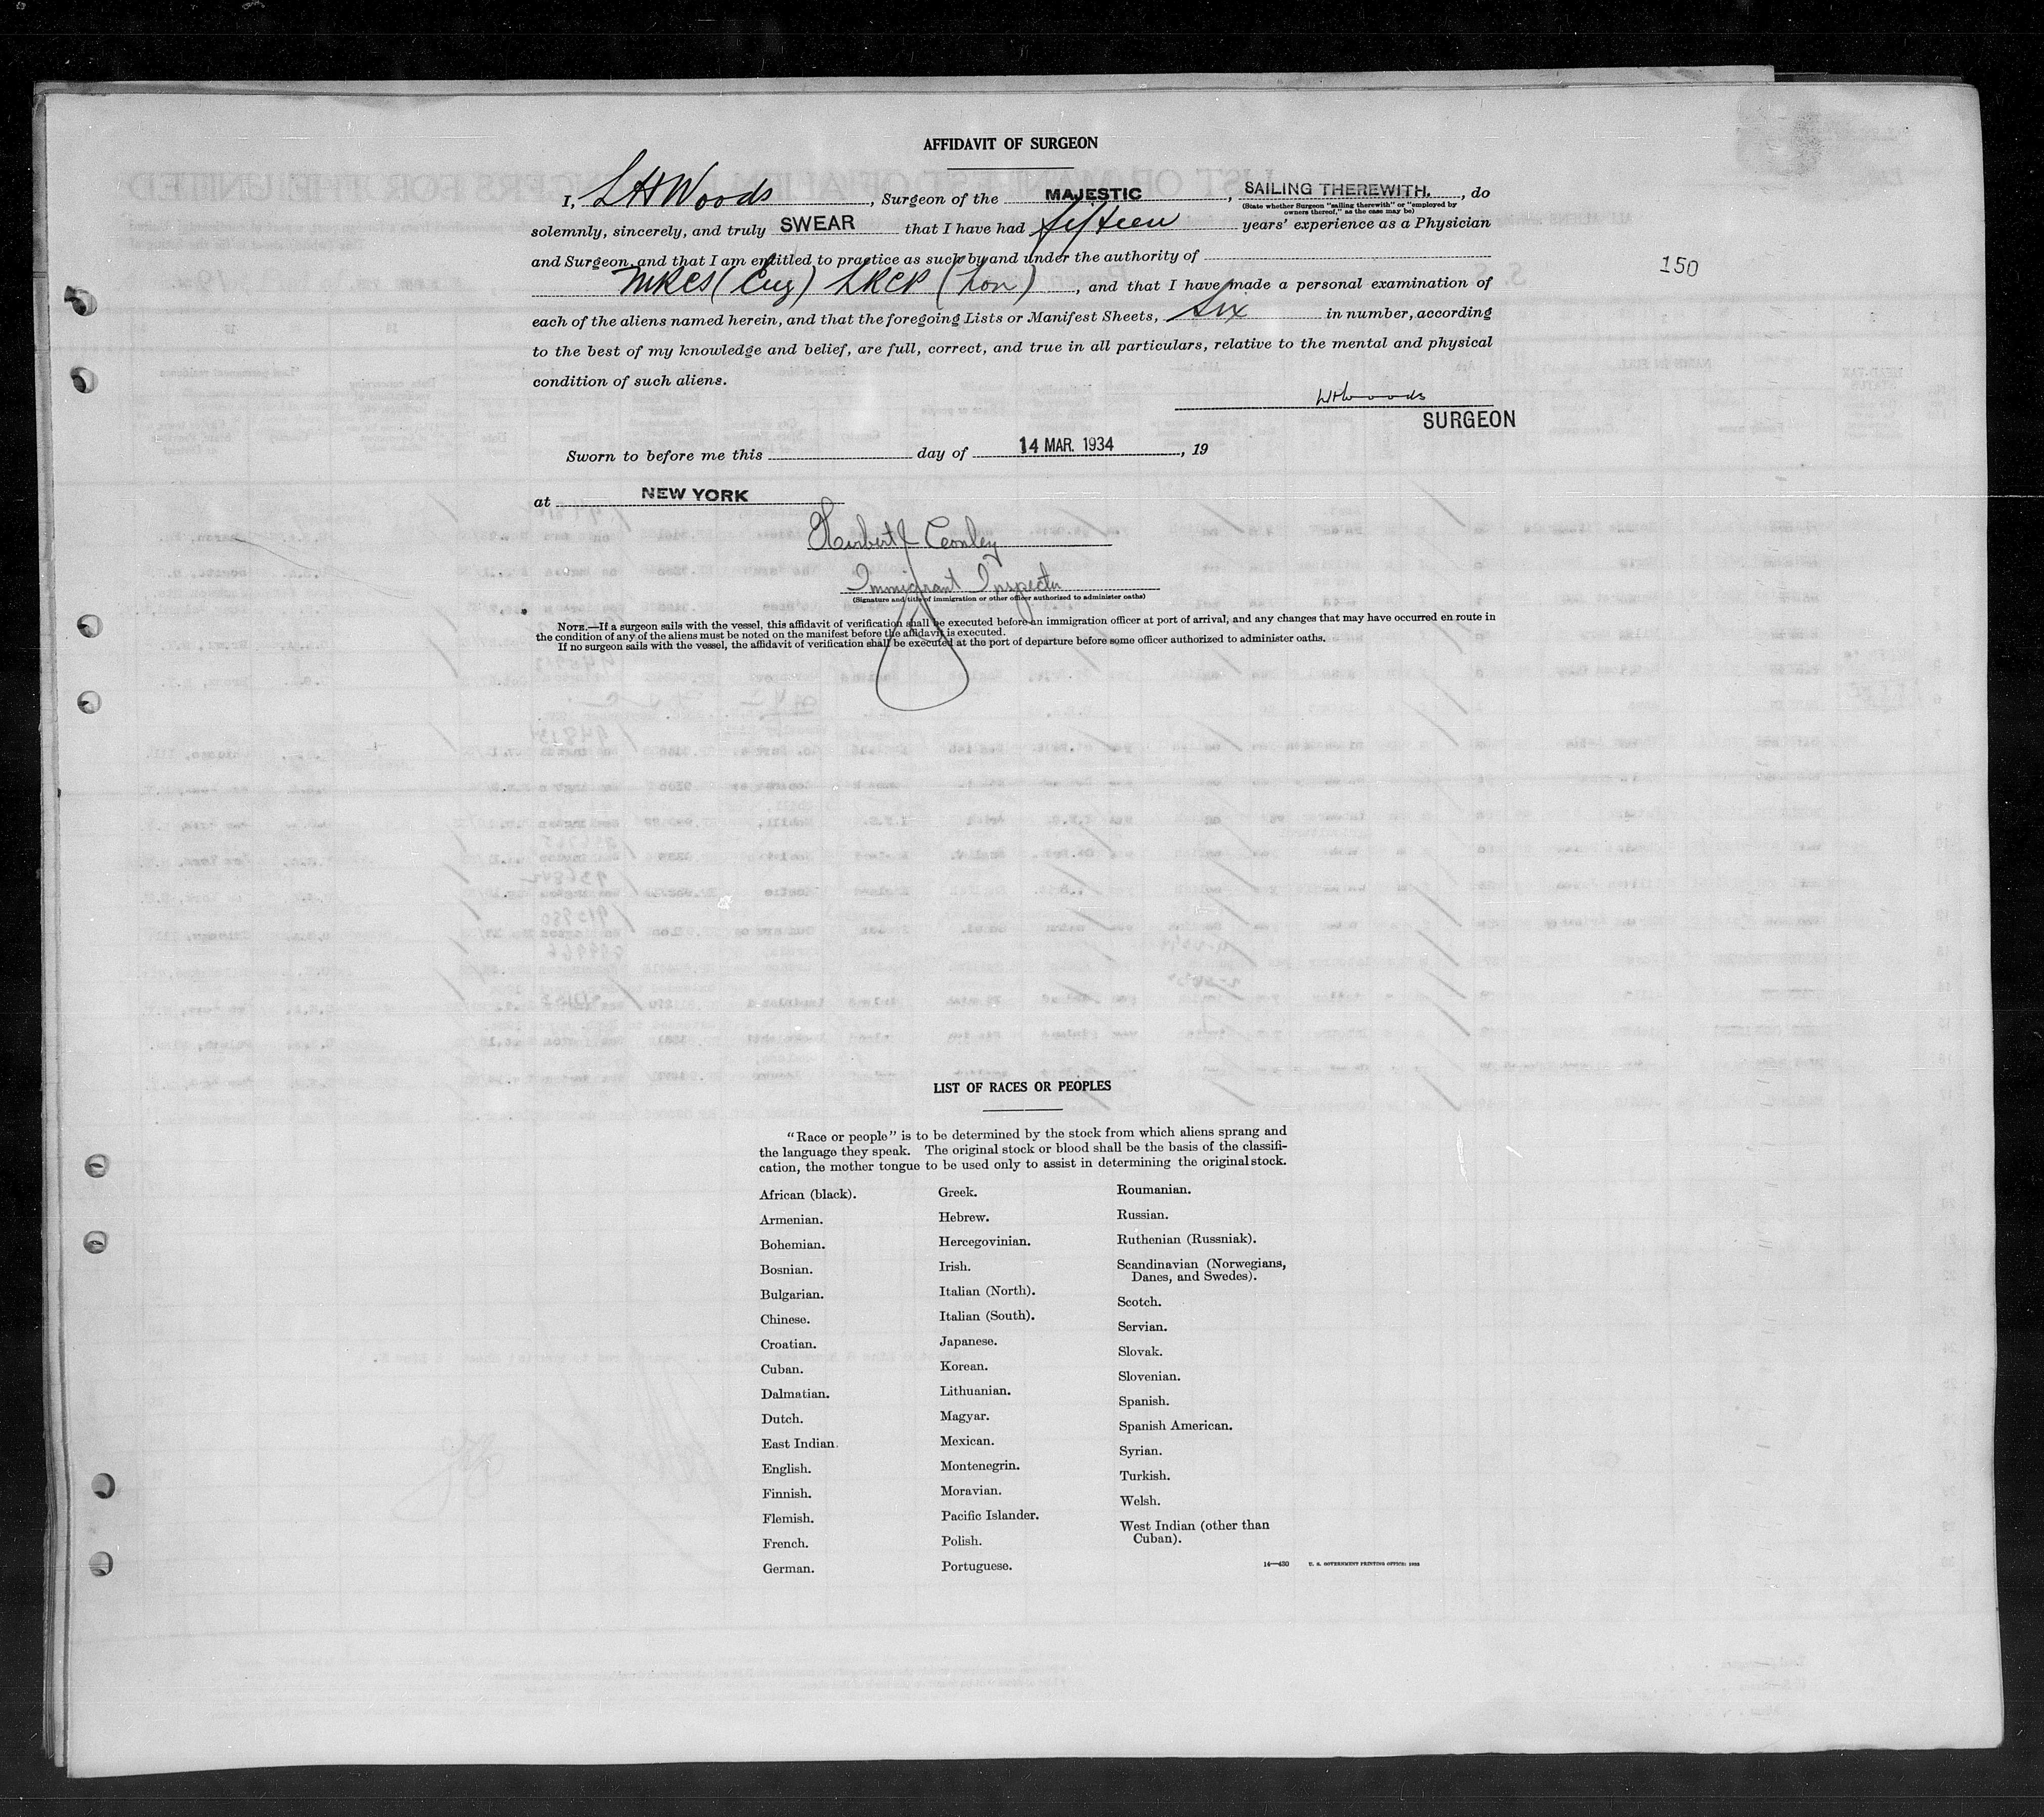 AFFIDAVIT OF SURGEON
I, L H Woods, Surgeon of the MAJESTIC, SAILING THEREWITH., do
(State whether Surgeon "sailing therewith" or "employed by
owners thereof," as the case may be)
solemnly, sincerely, and truly SWEAR that I have had fifteen years' experience as a Physician
and Surgeon, and that I am entitled to practice as such by and under the authority of
150
MRCS (Eng) LRCP (Lon), and that I have made a personal examination of
each of the aliens named herein, and that the foregoing Lists or Manifest Sheets, Six in number, according
to the best of my knowledge and belief, are full, correct, and true in all particulars, relative to the mental and physical
condition of such aliens.
LHWoods
SURGEON
Sworn to before me this day of 14 MAR. 1934, 19
at NEW YORK
Herbert J Conley
Immigrant Inspector
(Signature and title of immigration or other officer authorized to administer oaths)
NOTE.—If a surgeon sails with the vessel, this affidavit of verification shall be executed before an immigration officer at port of arrival, and any changes that may have occurred en route in
the condition of any of the aliens must be noted on the manifest before the affidavit is executed.
If no surgeon sails with the vessel, the affidavit of verification shall be executed at the port of departure before some officer authorized to administer oaths.
LIST OF RACES OR PEOPLES
"Race or people" is to be determined by the stock from which aliens sprang and
the language they speak. The original stock or blood shall be the basis of the classifi-
cation, the mother tongue to be used only to assist in determining the original stock.
African (black).
Armenian.
Bohemian.
Bosnian.
Bulgarian.
Chinese.
Croatian.
Cuban.
Dalmatian.
Dutch.
East Indian.
English.
Finnish.
Flemish.
French.
German.
Greek.
Hebrew.
Hercegovinian.
Irish.
Italian (North).
Italian (South).
Japanese.
Korean.
Lithuanian.
Magyar.
Mexican.
Montenegrin.
Moravian.
Pacific Islander.
Polish.
Portuguese.
Roumanian.
Russian.
Ruthenian (Russniak).
Scandinavian (Norwegians,
Danes, and Swedes).
Scotch.
Servian.
Slovak.
Slovenian.
Spanish.
Spanish American.
Syrian.
Turkish.
Welsh.
West Indian (other than
Cuban).
14—430 U. S. GOVERNMENT PRINTING OFFICE: 1933